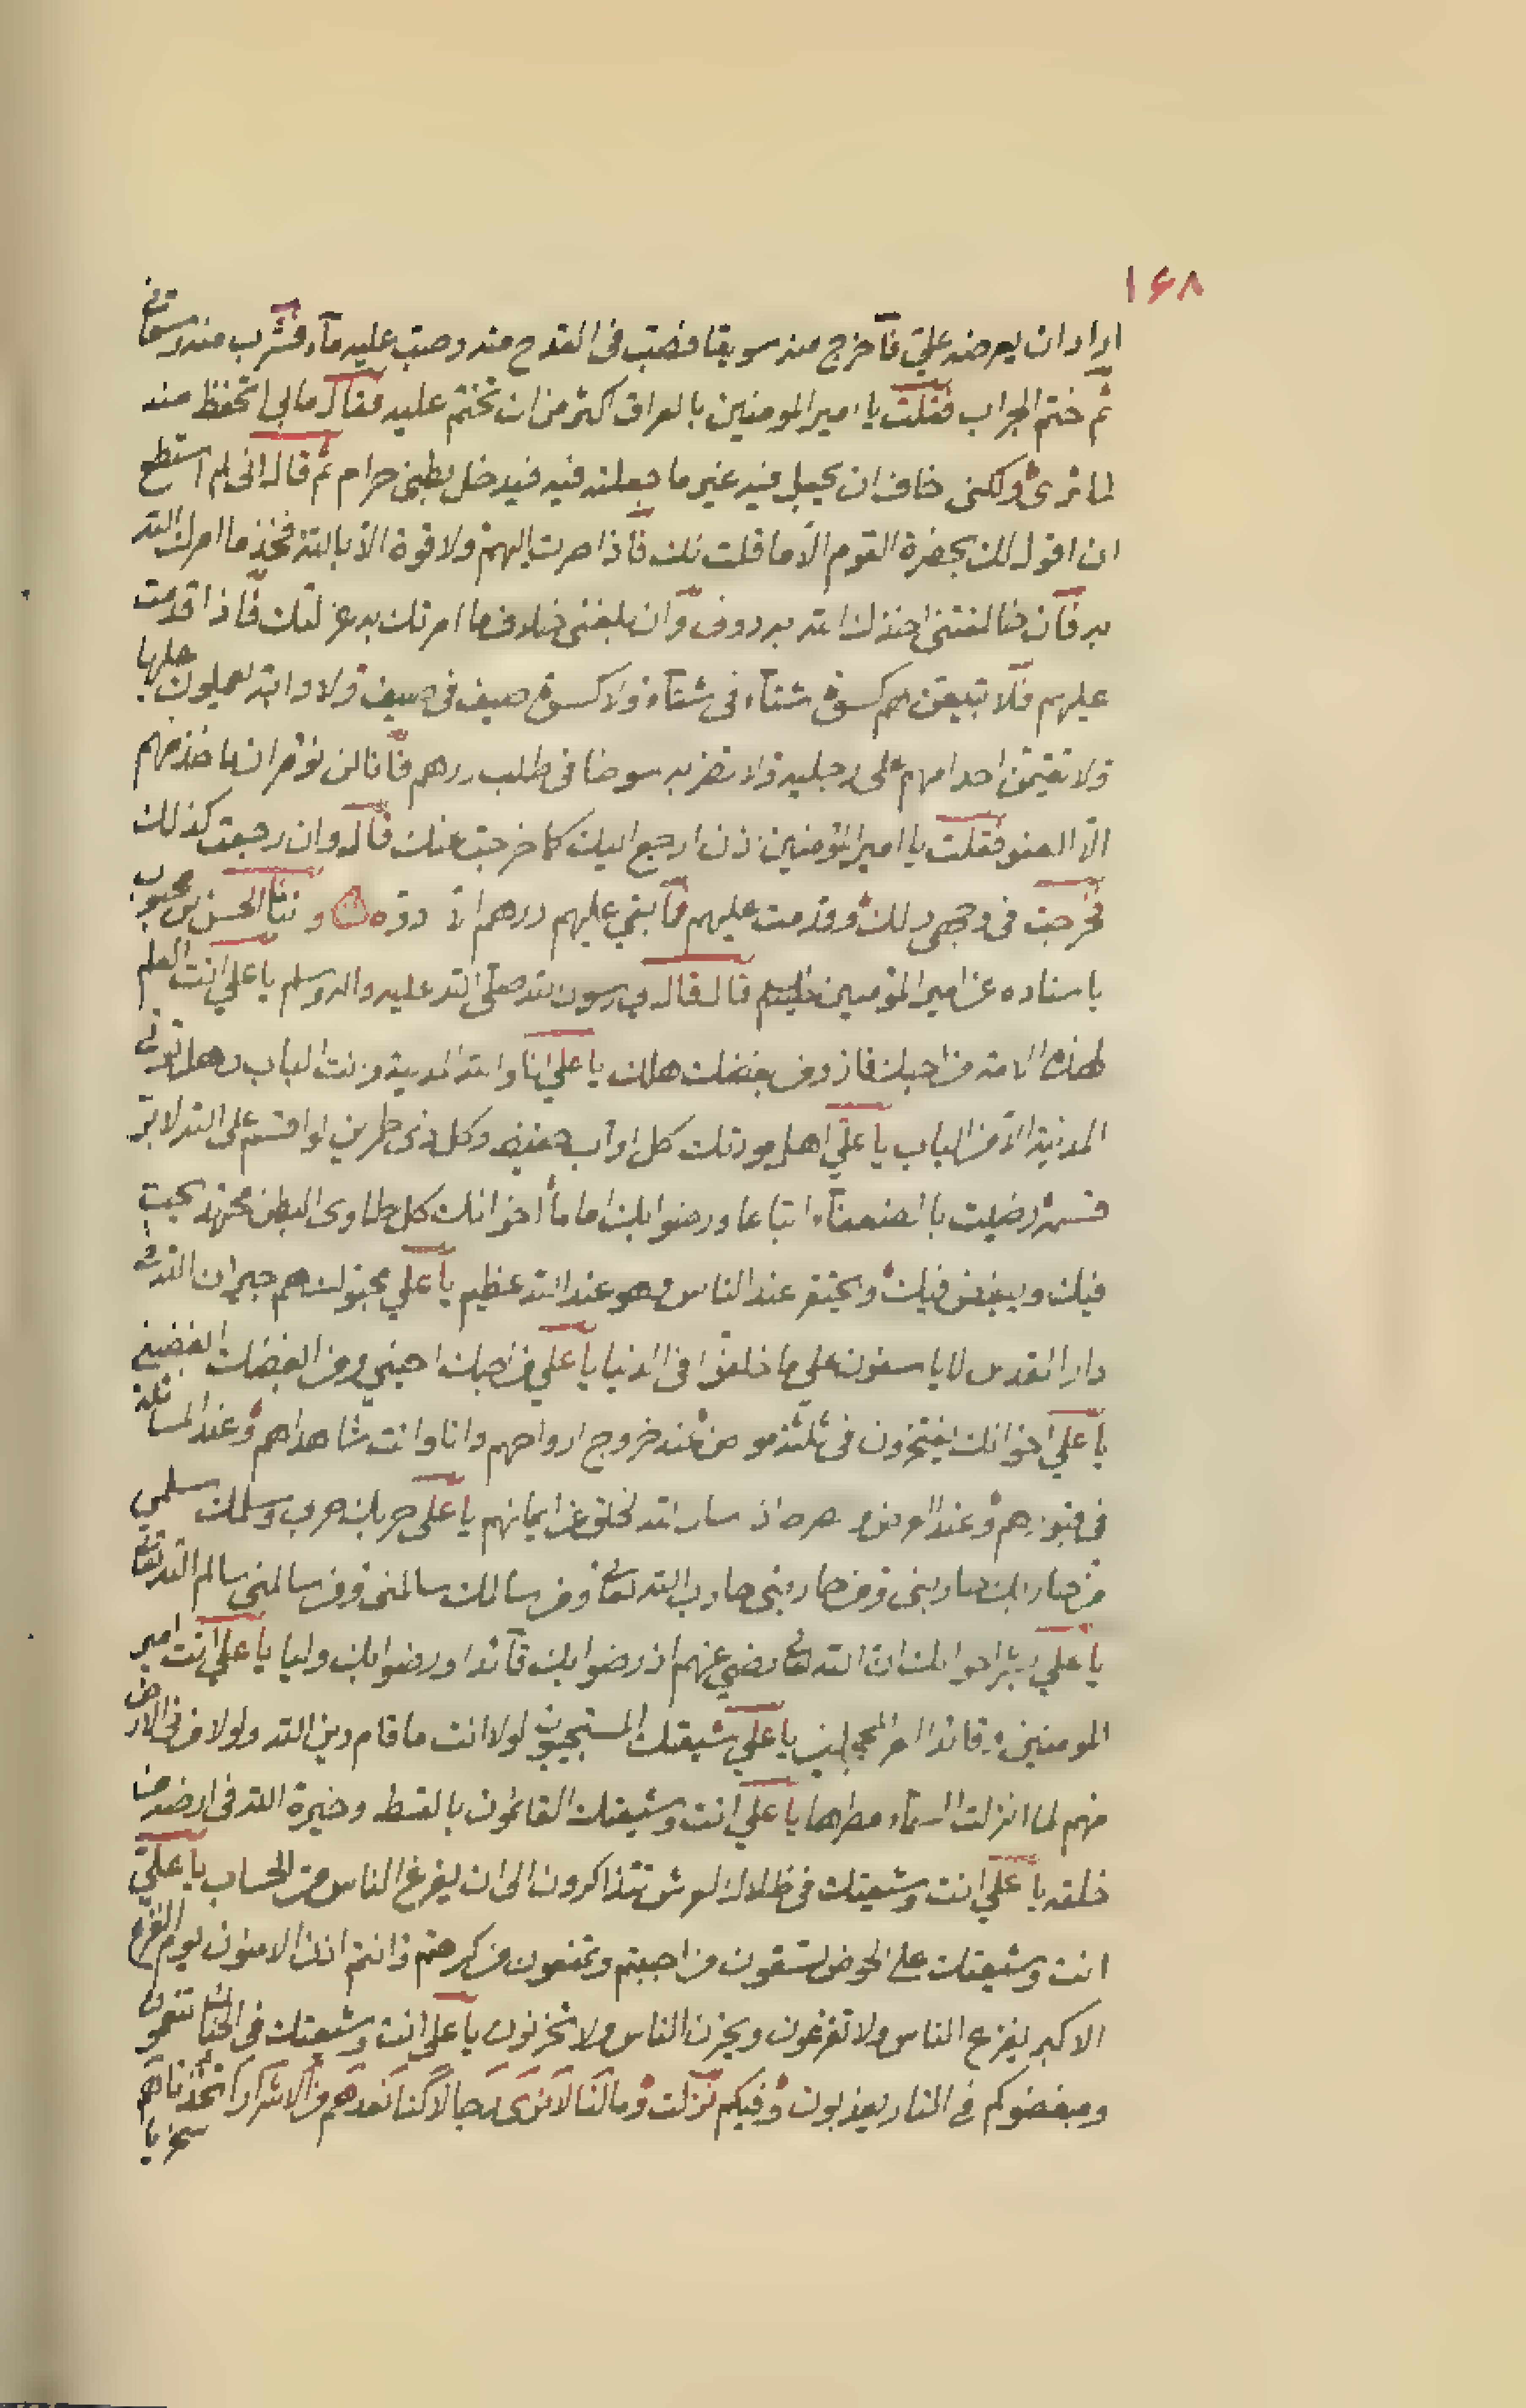 ١۶٨
اراد ان يعرضه علىّ فآخرج منه سويقا فصبّ فى القدح منه وصبّ عليه مآء فشرب منه وسقانى
ثم ختم الجراب فقلت يا امير المومنين بالعراق اكثر من ان تختم عليه فقال مالى اتحفظ منه
لما ترى ولكنى خاف ان يجعل فيه غير ما جعلته فيه فيدخل بطنى حرام ثم قال انى لم استطع
ان اقول لك بحضرة القوم الّا ما قلت لك فاذا صرت اليهم ولا قوة الا بالله فخذ ما امرك الله
به فان خالفتنى اخذك الله به دونى وان بلغنى خلاف ما امرتك به عزلتك فاذا قدمت
عليهم فلا تبيعن لهم كسوة شتآء فى شتآء ولا كسوة صيف فى صيف ولا دابة يعملون عليها
ولا تقيمن احدا منهم على رجليه ولا تضربه سوطا فى طلب درهم فانا لن نؤمر ان ناخذ منهم
الّا العفو فقلت يا امير المؤمنين اذن ارجع اليك كما خرجت عنك قال وان رجعت كذلك
فخرجت فى وجهى ذلك وقدمت عليهم فما بقى عليهم درهم الا ادوه و نبأنا الحسن بن محبوب
باسناده عن امير المؤمنين عليه السلم قال قال لى رسول الله صلى الله عليه واله وسلم يا على انت العلم
لهذه الامة من احبك فاز ومن ابغضك هلك يا على انا والله المدينة وانت الباب وهل تؤتى
المدينة الّا من الباب يا علىّ اهل مودتك كل اواب حفيظ وكل ذى طمرين لو اقسم على الله لابرّ
قسمه رضيت بالضعفآء اتباعا ورضوا بك اماما اخوانك كل طاوى البطن مجتهد يحب
فيك ويبغض فيك ويحتقر عند الناس وهو عند الله عظيم يا على محبوك هم جيران الله فى
دار القدس لا ياسفون على ما خلفوا فى الدنيا يا على من احبك احبنى ومن ابغضك ابغضنى
يا على اخوانك يفتخرون فى ثلثة مواضع عند خروج ارواحهم وانا وانت شاهداهم وعند المسائلة
فى قبورهم وعند العرض و الصراط اذ سال الله الخلق عن ايمانهم يا على حربك حربى وسلمك سلمى
من حاربك حاربنى ومن حاربنى حارب الله تعالى ومن سالمك سالمنى ومن سالمنى سالم الله تعالى
يا على بشر اخوانك ان الله تعالى رضى عنهم اذ رضوا بك قائدا ورضوا بك وليا يا على انت امير
المومنين وقائد الغر المحجلين يا على شيعتك المستجيبون لولا انت ما قام دين الله ولولا من فى الارض
منهم لما انزلت السمآء مطرها يا على انت وشيعتك القائمون بالقسط وخيرة الله فى ارضه من
خلقه يا على انت وشيعتك فى ظلال العرش تتذاكرون الى ان يفرغ الناس من الحساب يا على
انت وشيعتك على الحوض تسقون من احببتم وتمنعون من كرهتم وانتم الامنون يوم الفزع
الاكبر يفزع الناس ولا تفزعون ويحزن الناس ولا تحزنون يا على انت وشيعتك فى الجنان تتنعمون
ومبغضوكم فى النار يعذبون وفيكم نزلت وما لنا لا نرى رجالا كنا نعدهم من الاشرار اتخذناهم
سخريا